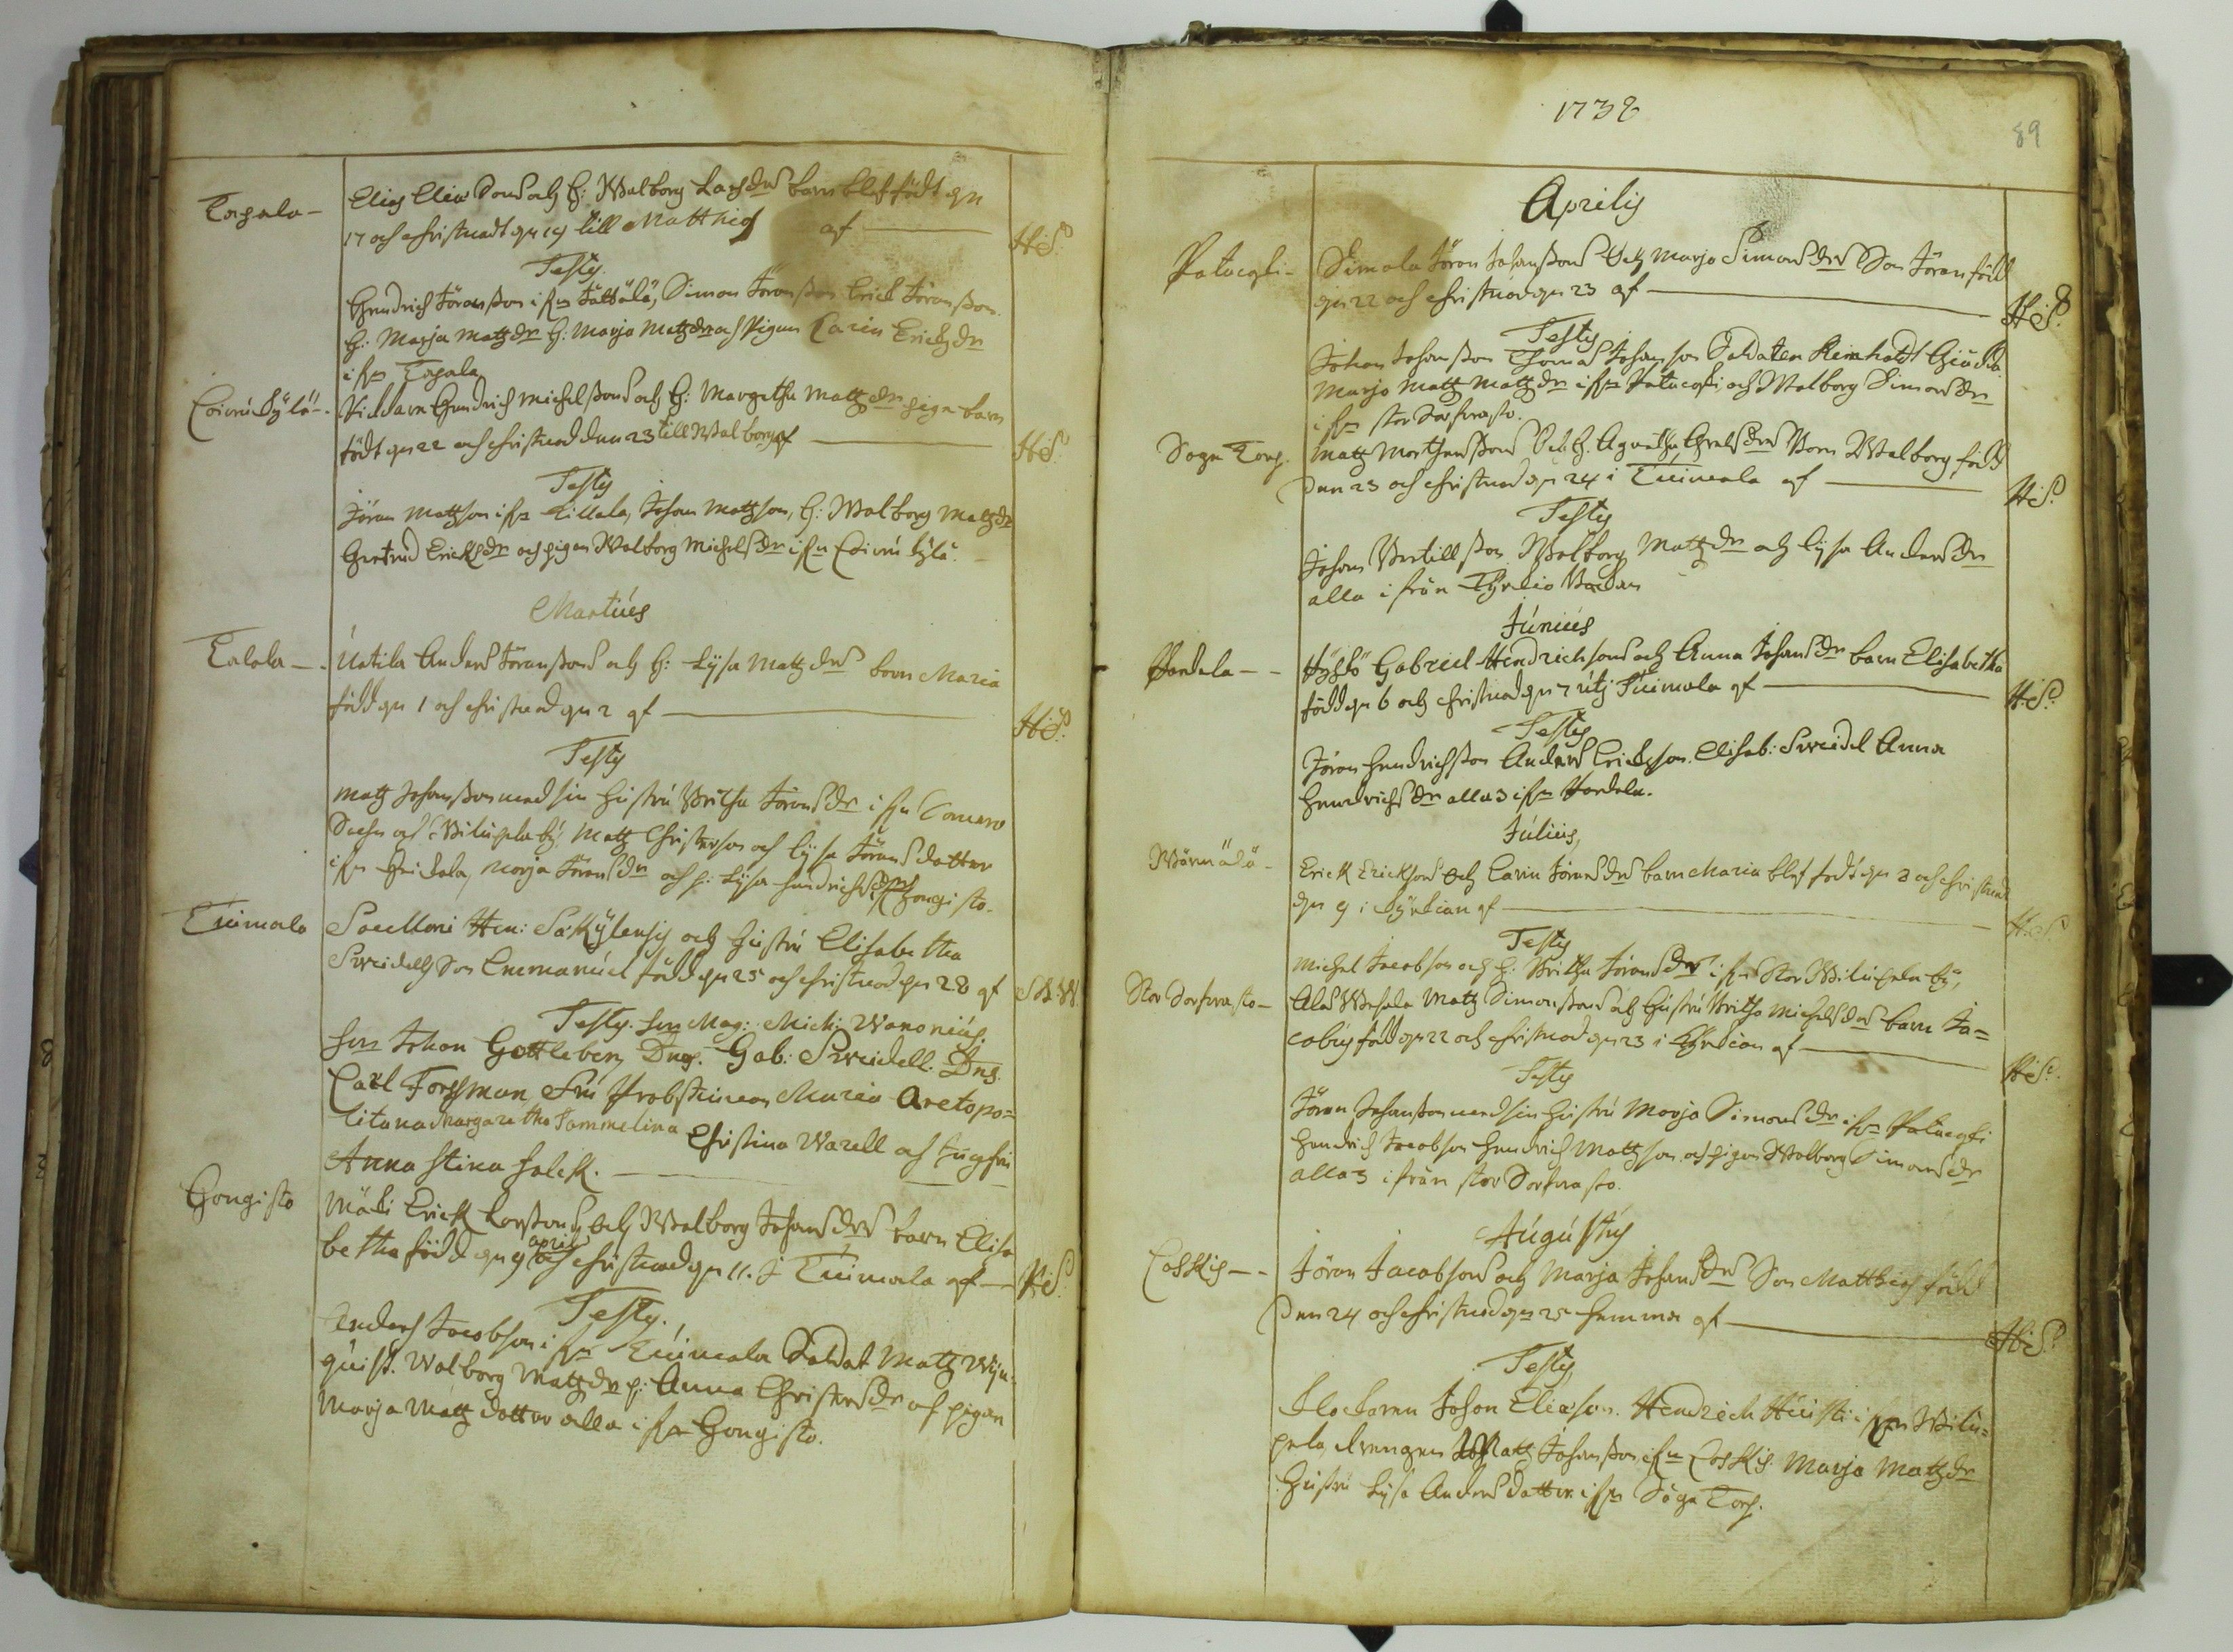 Tapala -
Elias Eliæ Sons och h: Walborg Larsdrs barn blef födt dn
17 och christnadt dn 19 till Matthias af
H:S:
Testes
Hendrich Jöransson i frn Jättälä, Simon Jöransson Erich Jöransson
h: Marja Matzdr h: Marja Matzdr och Pigan Carin Erichsdr
i frn Tapala
Coivukylä -
Hendrich Michelssons och h: Margetha Matzdrs piga barn
födt dn 22 och christnad den 23 till Walborg af
H:S:
Testes
Jöran Mattson i frn Lillala, Johan Mattson, h: Walborg Matzdr
Gertrud Erichsdr och pigan Walborg Michelsdr i frn Coivukylä.
Martius
Talala -
Uotila Anders Jöranssons och h: Lysa Matzdrs barn Maria
född dn 1 och christnad dn 2 af
H:S:
Testes
Matz Johansson med sin hustru Britha Jöransdr i frn
Sochn och Wiluxela by, Matz Christersson och Lysa Jöransdotter
i frn Heickala, Marja Jöransdr och h: Lysa Hendrichsdr i frn Hongisto.
Tuimala
Sacellani Hen: Säkylensis och hustru Elisabetha
Sweidells Son Emmanuel född dn 25 och christnad dn 28 af
Testes. Hrn Mag: Mich: Wanonius,
Hrn Johan Gottleben, Dns. Gab: Sweidell. Dns.
Carl Forssman, Fru Probstinnan Maria Aretopo=
litana Margaretha Tammelina Christina Warell och Jugfru
Anna Stina Falck.
Hongisto
Mäki Erick Larssons och Walborg Johansdrs barn Elisa
betha född dn 9 aprilis och christnad dn 11. i Tuimala af
H:S:
Testes.
Anders Jacobson i frn Tuimala Soldat Matz Wijn=
quist. Walborg Matzdr h: Anna Christersdr och pigan
Marja Matz dotter alla i frn Hongisto.
1738
89
Aprilis
Patucoski -
Simola Jöran Johanssons och Marja Simonsdrs Son Jöran född
dn 22 och christnad dn 23 af
H:S:
Testes
Johan Johansson Thomas Johansson Soldaten Reinholdt
Marja Matz Matzdr i frn Patucoski, och Walborg Simonsdr
i frn stor Sorfvasto.
Soga Torp.
Matz Morthenssons och h. Agnetha Grelsdrs Barn Walborg född
den 23 och christnad dn 24 i Tuimala af
H:S:
Testes
Johan Bertillsson Walborg Matzdr och Lysa Andersdr
alla i från Kyrkio Backan
Junius
Handela - -
Hyssö Gabriel Hendrichsons och Anna Johansdr barn Elisabetha
född dn 6 och christnad dn 7 uti Tuimala af
H:S:
Testes
Jöran Hendrichsson Anders Erichson. Elisab: Sweidel Anna
Hendrichsdr alla 3 i frn Handela.
Julius,
Wärmälä -
Erick Ericksons och Carin Jöransdrs barn Maria blef född dn 8 och christnad
dn 9 i Kyrkian af
H:S:
Testes
Michel Jacobson och h: Britha Jöransdr i frn Stor Wiluxela by,
Stor Sorfvasto -
Ala Wesala Matz Simonssons och Hustru Britha Michelsdrs barn Ja=
cobus född dn 22 och christnad dn 23 i Kyrkian af
H:S:
Testes
Jöran Johansson med sin hustru Marja Simonsdr i frn Patucoski
Hendrich Jacobson Hendrich Mattson och pigan Walborg Simonsdr
alla 3 i från stor Sorfvasto.
Augustus
Coskis - -
Jöran Jacobsons och Marja Johansdrs Son Matthias född
den 24 och christnad dn 25 hemma af
H:S:
Testes
Klockaren Johan Eliæson. Hendrich Heisti i frn Wilu=
xela, drengen Matz Johansson i frn Coskis Marja Matzdr
hustru Lysa Andersdotter i frn Soga Torp.